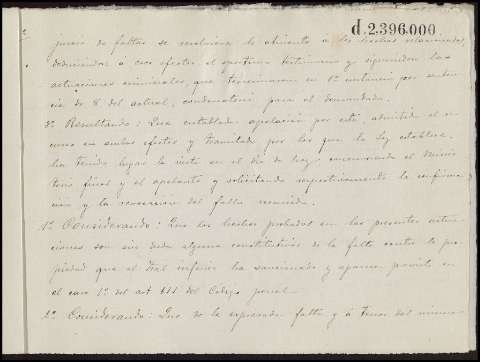 d.2.396.000
juicio de faltas se resolviera lo atinente á los hechos relacionados,
deduciendo á ese efecto el oportuno testimonio y siguiendose las
actuaciones criminales, que terminaron en 1ª instancia por senten-
cia de 8 del actual, condenatoria para el demandado.
Resultando: Que entablada apelación por este, admitido el re-
curso en ambos efectos y tramitada por los que la ley establece
ha tenido lugar la vista en el día de hoy, concurriendo el Minis-
terio fiscal y el apelante y solicitando respectivamente la confirma-
ción y la revocación del fallo recurrido.
1º Considerando: Que los hechos probados en las presentes actua-
ciones son sin duda alguna constitutivos de la falta contra la pro-
piedad que el Tral inferior ha sancionado y aparece prevista en
el caso 1º del art del Código penal.
2º Considerando: Que de la expresada falta y á tenor del mismo